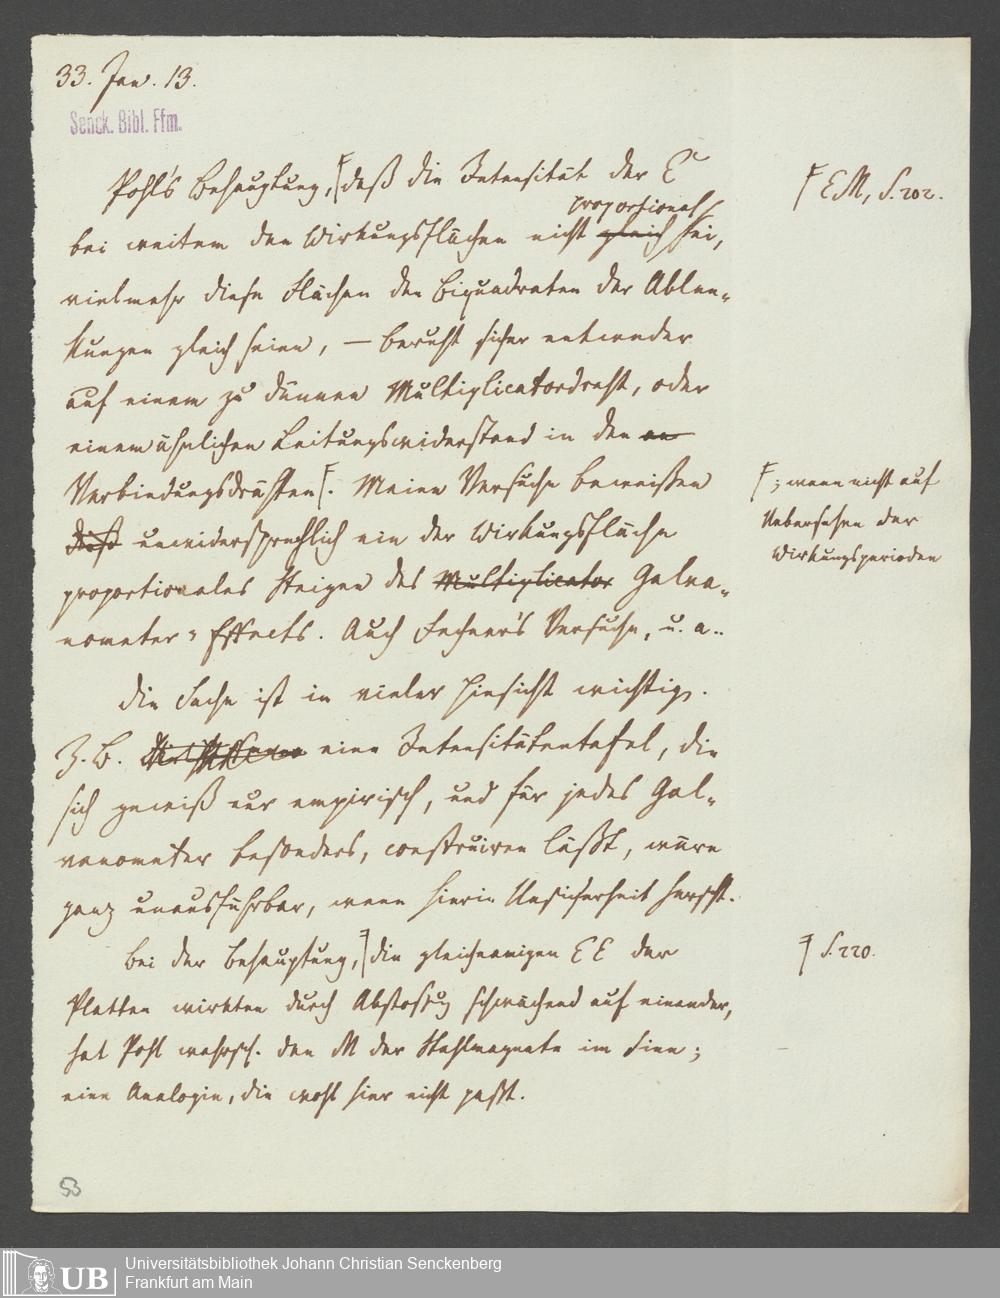 33. Jan. 13.
Senck. Bibl. Ffm.
Pohl's Behauptung, daß die Intensität der E
proportional
bei weitem den Wirkungsflächen nicht gleich sei,
vielmehr diese Flächen den Biquadraten der Ablen-
kungen gleich seien, – beruht sicher entweder
auf einem zu dünnen Multiplicatordraht, oder
einem ähnlichen Leitungswiderstand in den
Verbindungsdräthen. Meine Versuche beweißen
unwidersprechlich ein der Wirkungsfläche
proportionales Steigen des Multiplicator Galva-
nometer-Effects. Auch Fechner's Versuche, u. a..
Die Sache ist in vieler Hinsicht wichtig.
Z. B. eine Intensitätentafel, die
sich gewiß nur empirisch, und für jedes Gal-
vanometer besonders, construiren läßt, wäre
ganz unausführbar, wenn hierin Unsicherheit herrscht.
Bei der Behauptung, die gleichnamigen EE der
Platten wirkten durch Abstoßung schwächend auf einander,
hat Pohl wahrsch. den M der Stahlmagnete im Sinn;
eine Analogie, die wohl hier nicht passt.
EM, S. 202.
; wenn nicht auf
Uebersehen der
Wirkungsperioden
S. 220.
53
UB
Universitätsbibliothek Johann Christian Senckenberg
Frankfurt am Main